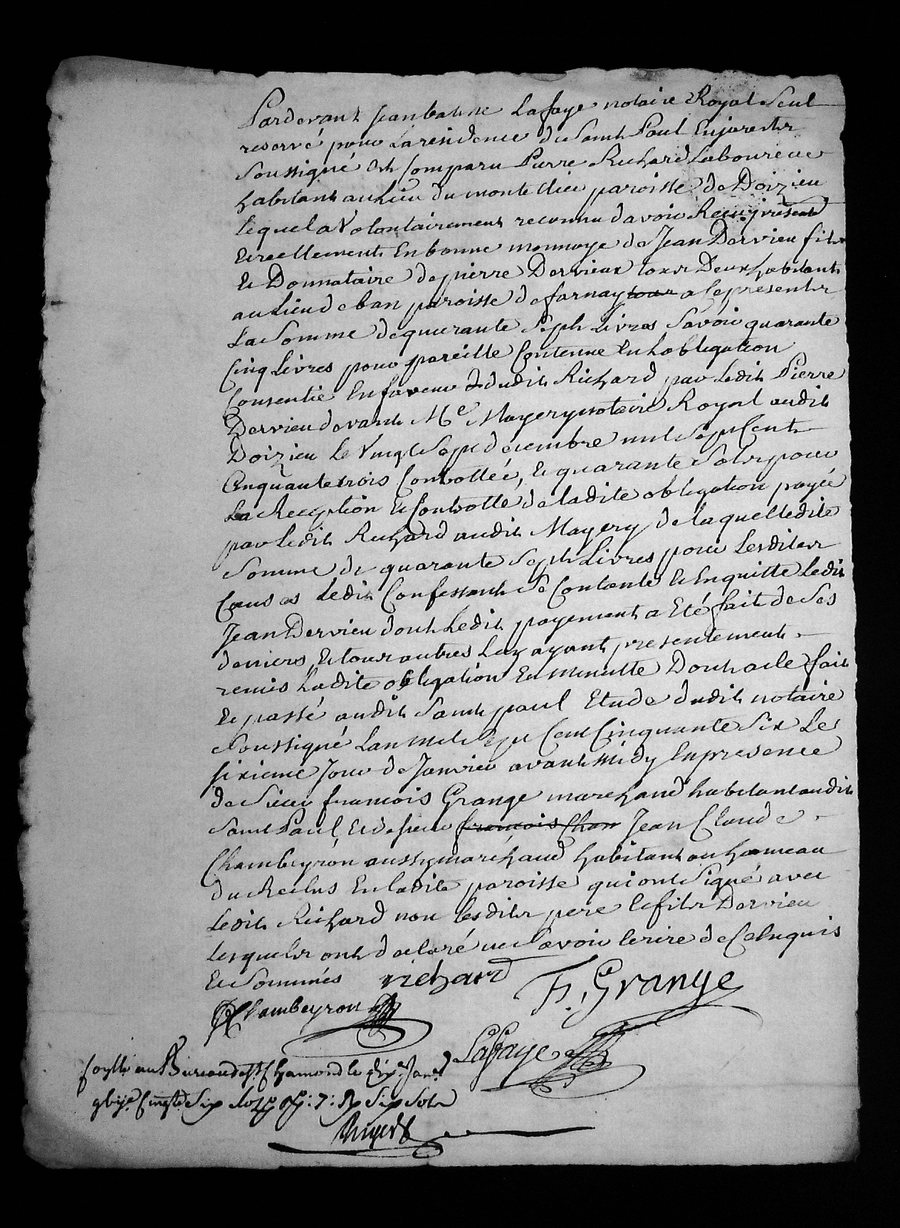 Pardevant Jean batiste Lafaye notaire Royal Seul
reservé pour La residence de Saint Paul En jarestz
Soussigné Est Comparu Pierre Richard Laboureur
habitant au Lieu du monteillieu paroisse de Doizieu
lequel a Volontairement reconnu davoir Recu presentt
Et reellement En bonne monnoye de Jean Dervieu fils
Et Donnataire de pierre Dervieux tous Deux habitants
au Lieu de ban paroisse de farnay tous a ce presents
La Somme de quarante Sept Livres Savoir quarante
Cinq Livres pour pareille Contenue En Lobligation
Consentie En faveur dudit Richard par Ledit Pierre
Dervieu devant Me Mayery notaire Royal audit
Doizieu Le vingt Sept decembre mil Sept Cent
Cinquante trois Controllée, Et quarante Sols pour
La Reception Et Controlle de ladite obligation payée
par Ledit Richard audit Mayery, de laquelle dite
Somme de quarante Sept Livres pour Lesdites
Causes Ledit Confessant Se Contente Et En quitte Ledit
Jean Dervieu dont Ledit payement a Eté fait de Ses
deniers, Et tous autres Luy ayant presentement
remis Ladite obligation En minutte Dont acte fait
Et passé audit Saint paul Etude dudit notaire
Soussigné Lan mil Sept Cent Cinquante Six Le
sixieme Jour de Janvier avant midy En presence
de Sieur francois Grange marchand habitant audit
Saint Paul, Et de sieur francois Cham Jean Claude
Chambeyron aussy marchand habitant au hameau
du Reclus En ladite paroisse qui ont Signé avec
Ledit Richard non Lesdits pere Et fils Dervieu
Lesquels ont declaré ne Savoir Ecrire de Ce Enquis
Et Sommés richard F. Grange
Chambeyron
Lafaye
Conllé au Bureau de St Chamond le Janer
Cinqte Six Six Sols